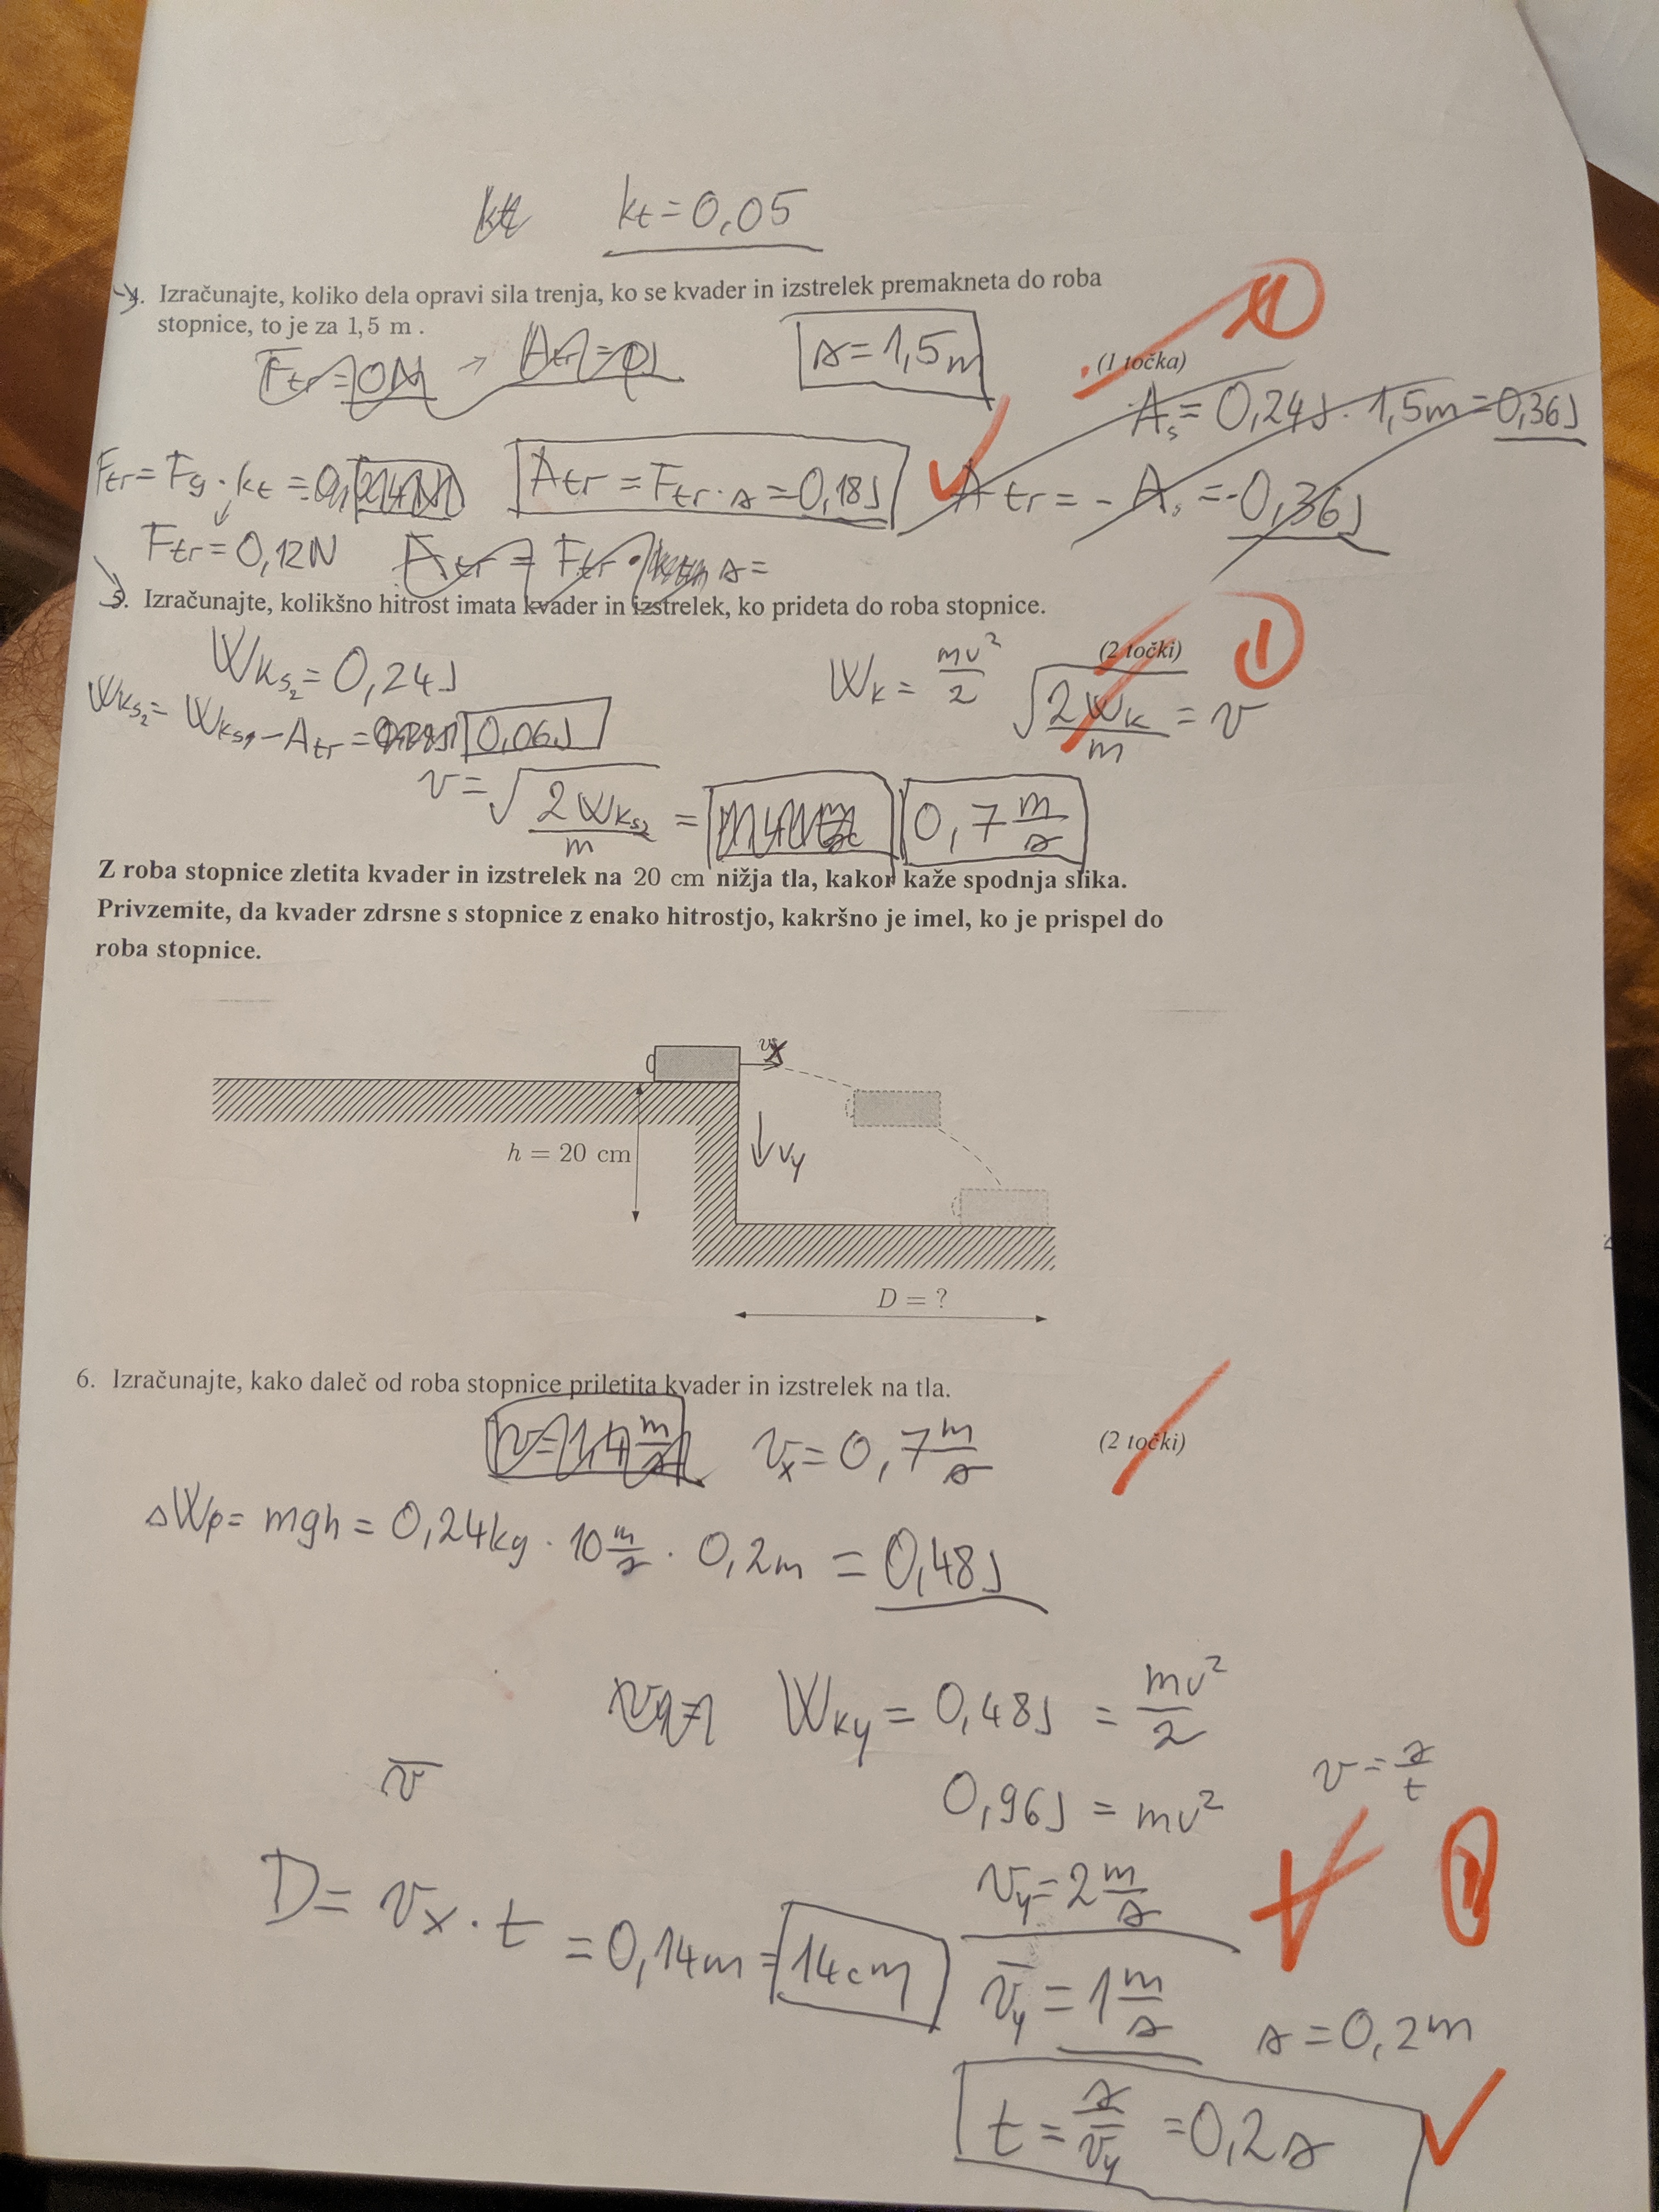 kt kt = 0,05
4. Izračunajte, koliko dela opravi sila trenja, ko se kvader in izstrelek premakneta do roba
stopnice, to je za 1,5 m .
Ftr = 0N → Atr = 0J s = 1,5m (1 točka) 1
As = 0,24J · 1,5m = 0,36J
Ftr = Fg · kt = 0, Atr = Ftr · s = 0,18J Atr = - As = -0,36J
Ftr = 0,12N Atr = Ftr · s =
5. Izračunajte, kolikšno hitrost imata kvader in izstrelek, ko prideta do roba stopnice.
(2 točki) 1
Wks₂ = 0,24J Wk = mv²/2 √(2Wk/m) = v
Wks₂ = Wks₁ - Atr = 0,06J
v = √(2Wks₂/m) = 0,7 m/s
Z roba stopnice zletita kvader in izstrelek na 20 cm nižja tla, kakor kaže spodnja slika.
Privzemite, da kvader zdrsne s stopnice z enako hitrostjo, kakršno je imel, ko je prispel do
roba stopnice.
vx
h = 20 cm
vy
D = ?
6. Izračunajte, kako daleč od roba stopnice priletita kvader in izstrelek na tla.
(2 točki)
v = 1,4 m/s vx = 0,7 m/s
ΔWp = mgh = 0,24kg · 10 m/s · 0,2m = 0,48J
Wky = 0,48J = mv²/2
v̅ 0,96J = mv² v = s/t
vy = 2 m/s
D = vx · t = 0,14m = 14cm
v̅y = 1 m/s s = 0,2m
t = s/v̅y = 0,2s